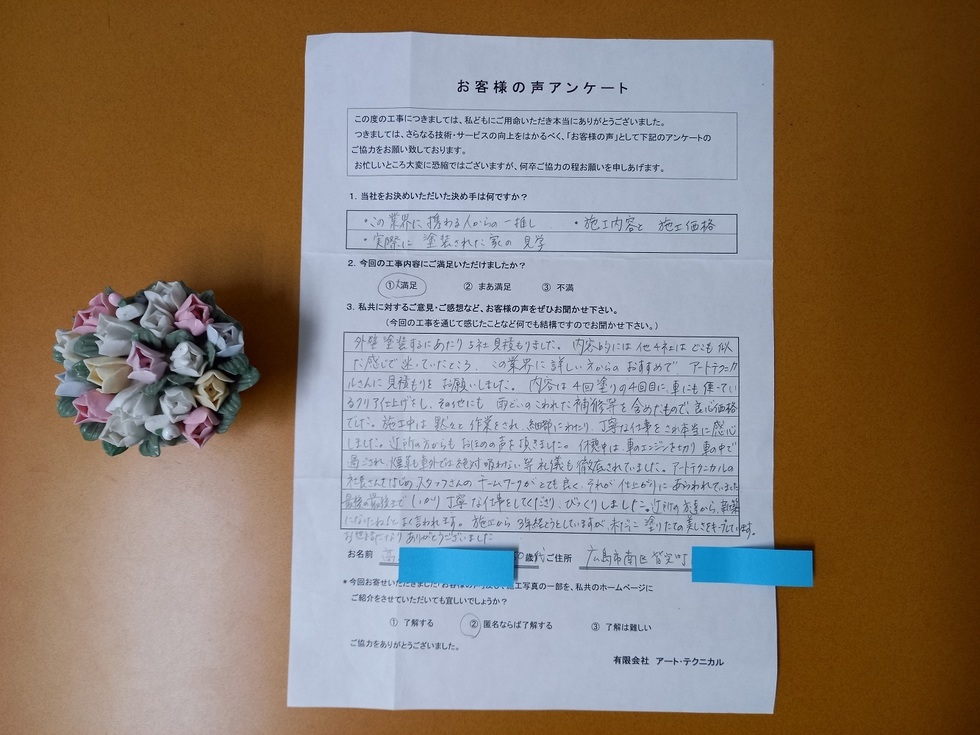 お客様の声アンケート
この度の工事につきましては、私どもにご用命いただき本当にありがとうございました。
つきましては、さらなる技術・サービスの向上をはかるべく、「お客様の声」として下記のアンケートの
ご協力をお願い致しております。
お忙しいところ大変に恐縮ではございますが、何卒ご協力の程お願いを申しあげます。
1. 当社をお決めいただいた決め手は何ですか?
・この業界に携わる人からの一推し ・施工内容と 施工価格
・実際に 塗装された家の 見学
2. 今回の工事内容にご満足いただけましたか?
① 大満足 ② まあ満足 ③ 不満
3. 私共に対するご意見・ご感想など、お客様の声をぜひお聞かせ下さい。
(今回の工事を通じて感じたことなど何でも結構ですのでお聞かせ下さい。)
外壁塗装するにあたり5社見積もりました。内容的には他4社はどこも似
た感じで迷っていたところ、この業界に詳しい方からのおすすめで アートテクニカ
ルさんに見積もりをお願いしました。内容は4回塗りの4回目に、車にも使ってい
るクリア仕上げをし、その他にも 雨どいのこわれた補修等を含めたもので、良心価格
でした。施工中は黙々と作業をされ、細部にわたり、丁寧な仕事をされ本当に感心
しました。近所の方からもおほめの声を頂きました。休憩中は車のエンジンを切り車の中で
過ごされ 煙草も車外では絶対吸わない等 礼儀も徹底されていました。アートテクニカルの
社長さんをはじめスタッフさんの チームワークがとても良く、それが 仕上がりに あらわれていました
最後の最後まで しっかり丁寧な仕事をしてくださり、びっくりしました。近所の方から、新築
になったねとよく言われます。施工から 3年経とうとしていますが 未だに 塗りたての美しさを
ありがとうございました
お名前 高 歳代 ご住所 広島市南区皆実町
*今回お寄せいただきました お客様の 施工写真の一部を、私共のホームページに
ご紹介をさせていただいても宜しいでしょうか?
① 了解する ② 匿名ならば了解する ③ 了解は難しい
ご協力をありがとうございました。
有限会社 アート・テクニカル